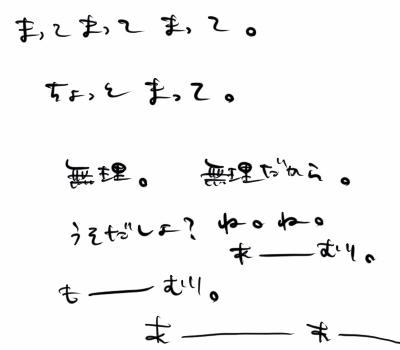 まってまって まって。
ちょっと まって。
無理。 無理だから。
うそだしょ? ね。ね。
ま──むり。
も──むり。
ま────ま──